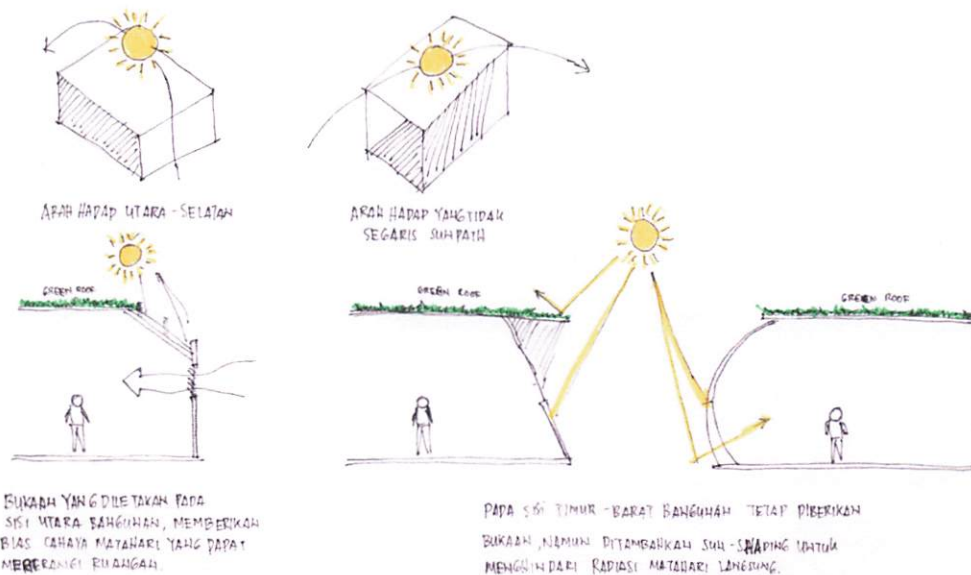 ARAH HADAP UTARA - SELATAN
ARAH HADAP YANG TIDAK
SEGARIS SUNPATH
GREEN ROOF
GREEN ROOF
GREEN ROOF
BUKAAN YANG DILETAKAN PADA
SISI UTARA BANGUNAN, MEMBERIKAN
BIAS CAHAYA MATAHARI YANG DAPAT
MENERANGI RUANGAN.
PADA SISI TIMUR - BARAT BANGUNAN TETAP DIBERIKAN
BUKAAN, NAMUN DITAMBAHKAN SUN-SHADING UNTUK
MENGHINDARI RADIASI MATAHARI LANGSUNG.